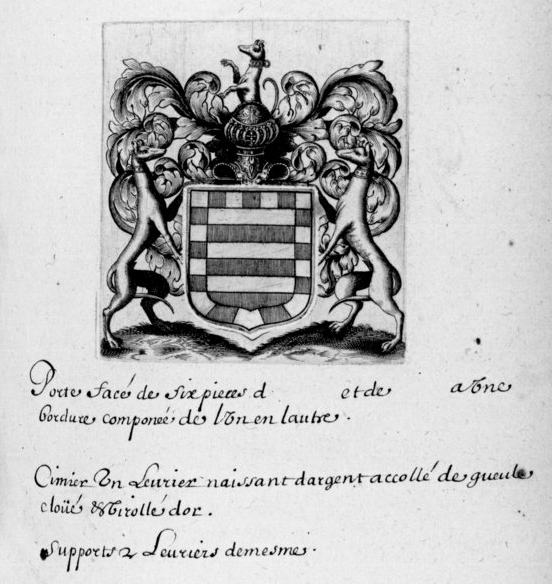 Porte facé de six pieces d et de a Vne
bordure componeé de l'Vn en lautre .
Cimier Vn Leurier naissant dargent accollé de gueule
cloüé & Virollé dor .
Supports 2 Leuriers demesme .